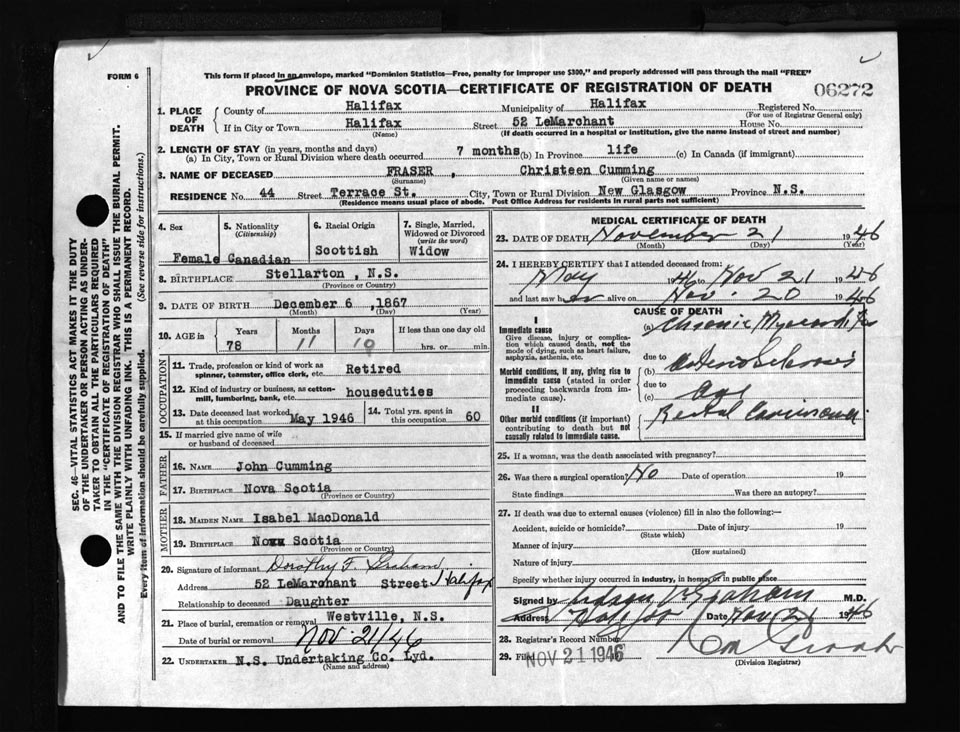 FORM 6
This form if placed in an envelope, marked "Dominion Statistics—Free, penalty for improper use $300," and properly addressed will pass through the mail "FREE"
PROVINCE OF NOVA SCOTIA—CERTIFICATE OF REGISTRATION OF DEATH
06272
1. PLACE OF DEATH
County of Halifax Municipality of Halifax Registered No.
(For use of Registrar General only)
If in City or Town Halifax Street 52 LeMarchant House No.
(Name) (If death occurred in a hospital or institution, give the name instead of street and number)
2. LENGTH OF STAY (in years, months and days)
(a) In City, Town or Rural Division where death occurred 7 months (b) In Province life (c) In Canada (if immigrant)
3. NAME OF DECEASED FRASER , Christeen Cumming
(Surname) (Given name or names)
RESIDENCE No. 44 Street Terrace St. City, Town or Rural Division New Glasgow Province N.S.
(Residence means usual place of abode. Post Office Address for residents in rural parts not sufficient)
4. Sex
Female
5. Nationality
(Citizenship)
Canadian
6. Racial Origin
Scottish
7. Single, Married, Widowed or Divorced
(write the word)
Widow
8. BIRTHPLACE Stellarton , N.S.
(Province or Country)
9. DATE OF BIRTH December 6 ,1867
(Month) (Day) (Year)
10. AGE in
Years Months Days If less than one day old
78 11 hrs. or min.
OCCUPATION
11. Trade, profession or kind of work as spinner, teamster, office clerk, etc. Retired
12. Kind of industry or business, as cotton-mill, lumbering, bank, etc. houseduties
13. Date deceased last worked at this occupation May 1946
14. Total yrs. spent in this occupation 60
15. If married give name of wife or husband of deceased
FATHER
16. NAME John Cumming
17. BIRTHPLACE Nova Scotia
(Province or Country)
MOTHER
18. MAIDEN NAME Isabel MacDonald
19. BIRTHPLACE Scotia
(Province or Country)
20. Signature of informant Dorothy F. Graham
Address 52 LeMarchant Street, Halifax
Relationship to deceased Daughter
21. Place of burial, cremation or removal Westville, N.S.
Date of burial or removal Nov. 21/46
22. UNDERTAKER N.S. Undertaking Co. Lyd.
(Name and address)
MEDICAL CERTIFICATE OF DEATH
23. DATE OF DEATH November 21 1946
(Month) (Day) (Year)
24. I HEREBY CERTIFY that I attended deceased from:
May 1946 to Nov 21 1946
and last saw her alive on Nov. 20 1946
CAUSE OF DEATH
I
Immediate cause
Give disease, injury or complication which caused death, not the mode of dying, such as heart failure, asphyxia, asthenia, etc.
(a) Chronic
due to
Morbid conditions, if any, giving rise to immediate cause (stated in order proceeding backwards from immediate cause).
(b)
due to
(c) age
II
Other morbid conditions (if important) contributing to death but not causally related to immediate cause.
25. If a woman, was the death associated with pregnancy?
26. Was there a surgical operation? No Date of operation 19
State findings Was there an autopsy?
27. If death was due to external causes (violence) fill in also the following:—
Accident, suicide or homicide? Date of injury 19
(State which)
Manner of injury
(How sustained)
Nature of injury
Specify whether injury occurred in industry, in home, or in public place
Signed by Graham M.D.
Address Halifax Date Nov 21 1946
28. Registrar's Record Number
29. Filed NOV 21 1946
(Division Registrar)
SEC. 46—VITAL STATISTICS ACT MAKES IT THE DUTY
OF THE UNDERTAKER OR PERSON ACTING AS UNDER-
TAKER TO OBTAIN ALL THE PARTICULARS REQUIRED
IN THE "CERTIFICATE OF REGISTRATION OF DEATH"
AND TO FILE THE SAME WITH THE DIVISION REGISTRAR WHO SHALL ISSUE THE BURIAL PERMIT.
WRITE PLAINLY WITH UNFADING INK. THIS IS A PERMANENT RECORD.
Every item of information should be carefully supplied. (See reverse side for instructions.)